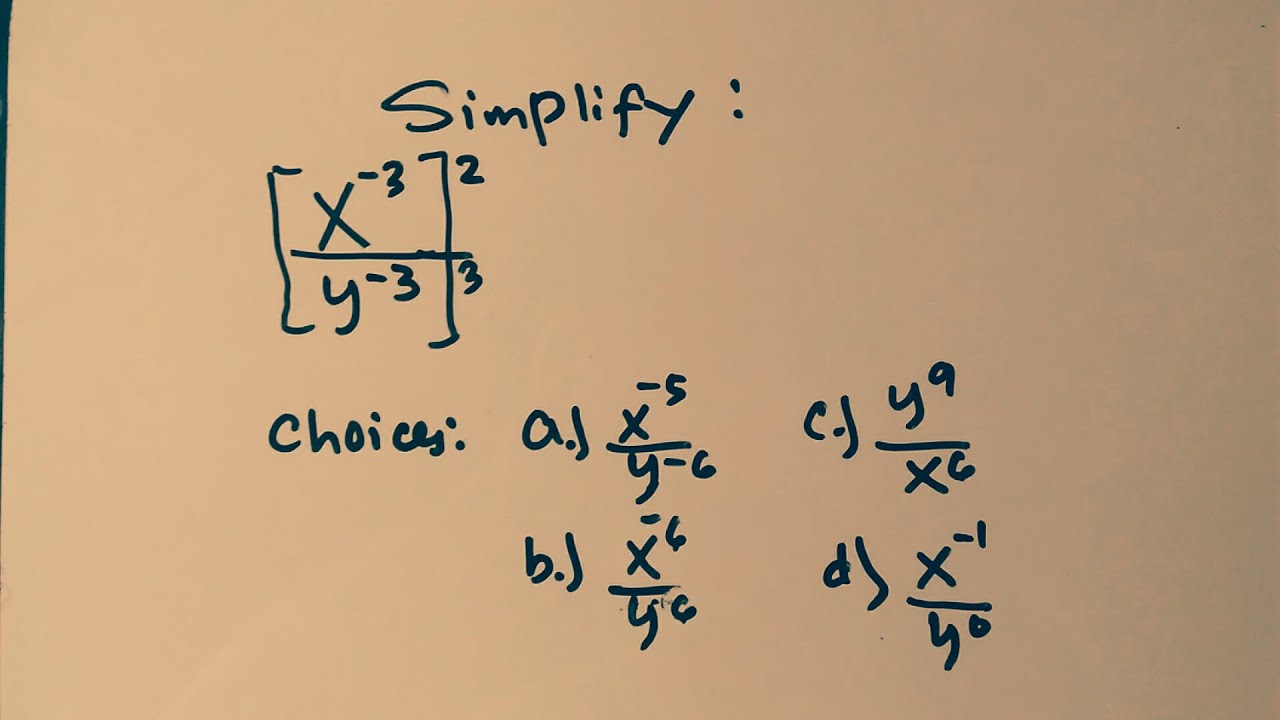 Simplify:
[x⁻³]²
y⁻³ ]³
Choices: a.) x⁻⁵/y⁻⁶ c.) y⁹/x⁶
b.) x⁻⁶/y⁶ d) x⁻¹/y⁰